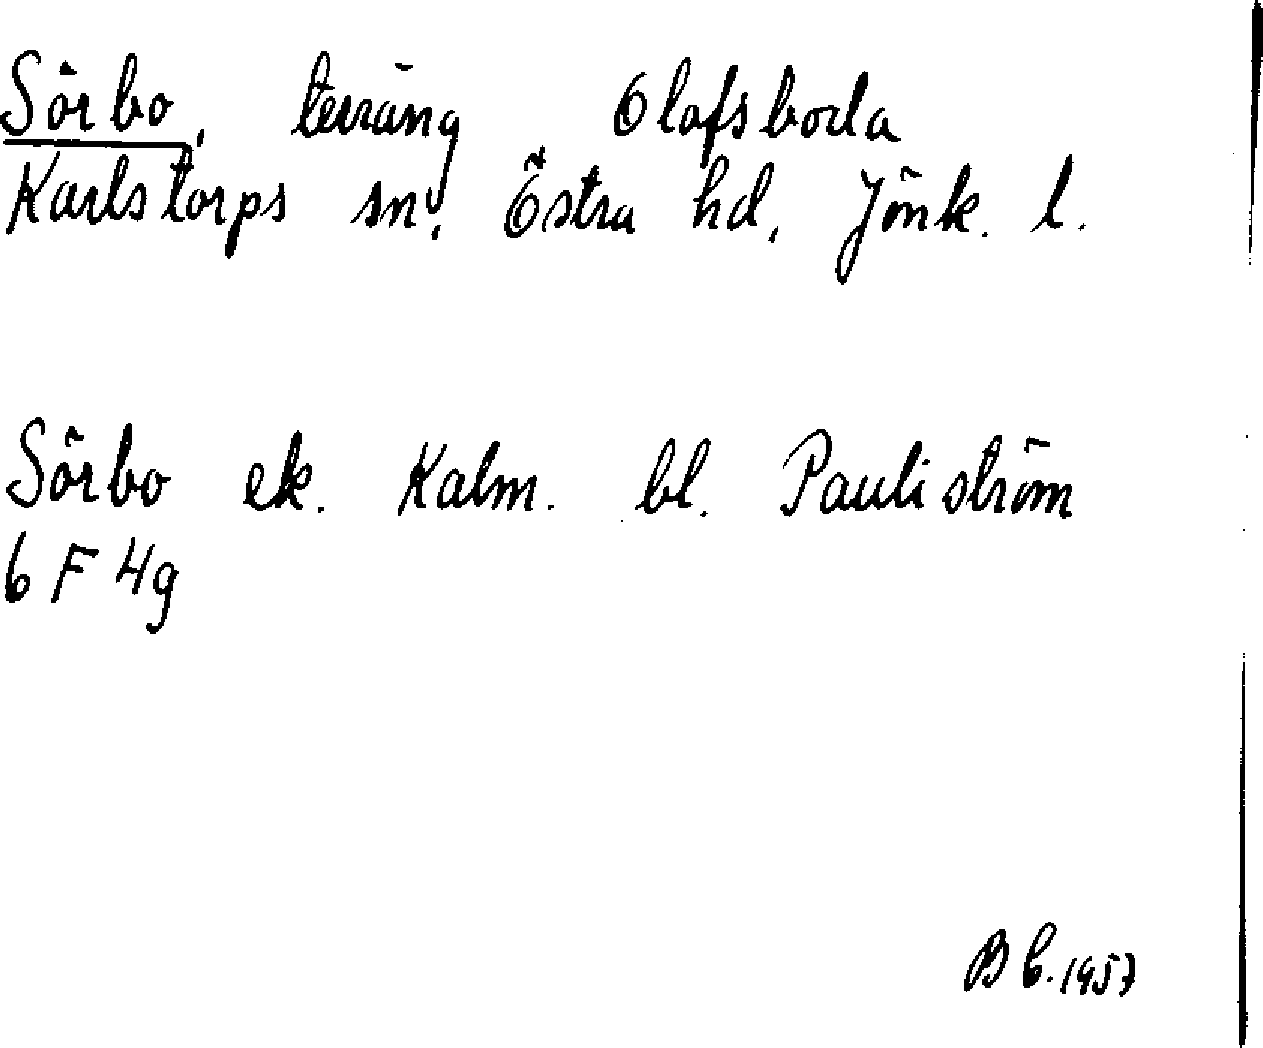 Sörbo, terräng Olofsboda
Karlstorps sn, Östra hd, Jönk. l.
Sörbo ek. Kalm. bl. Pauliström
6 F 4g
B b. 1957